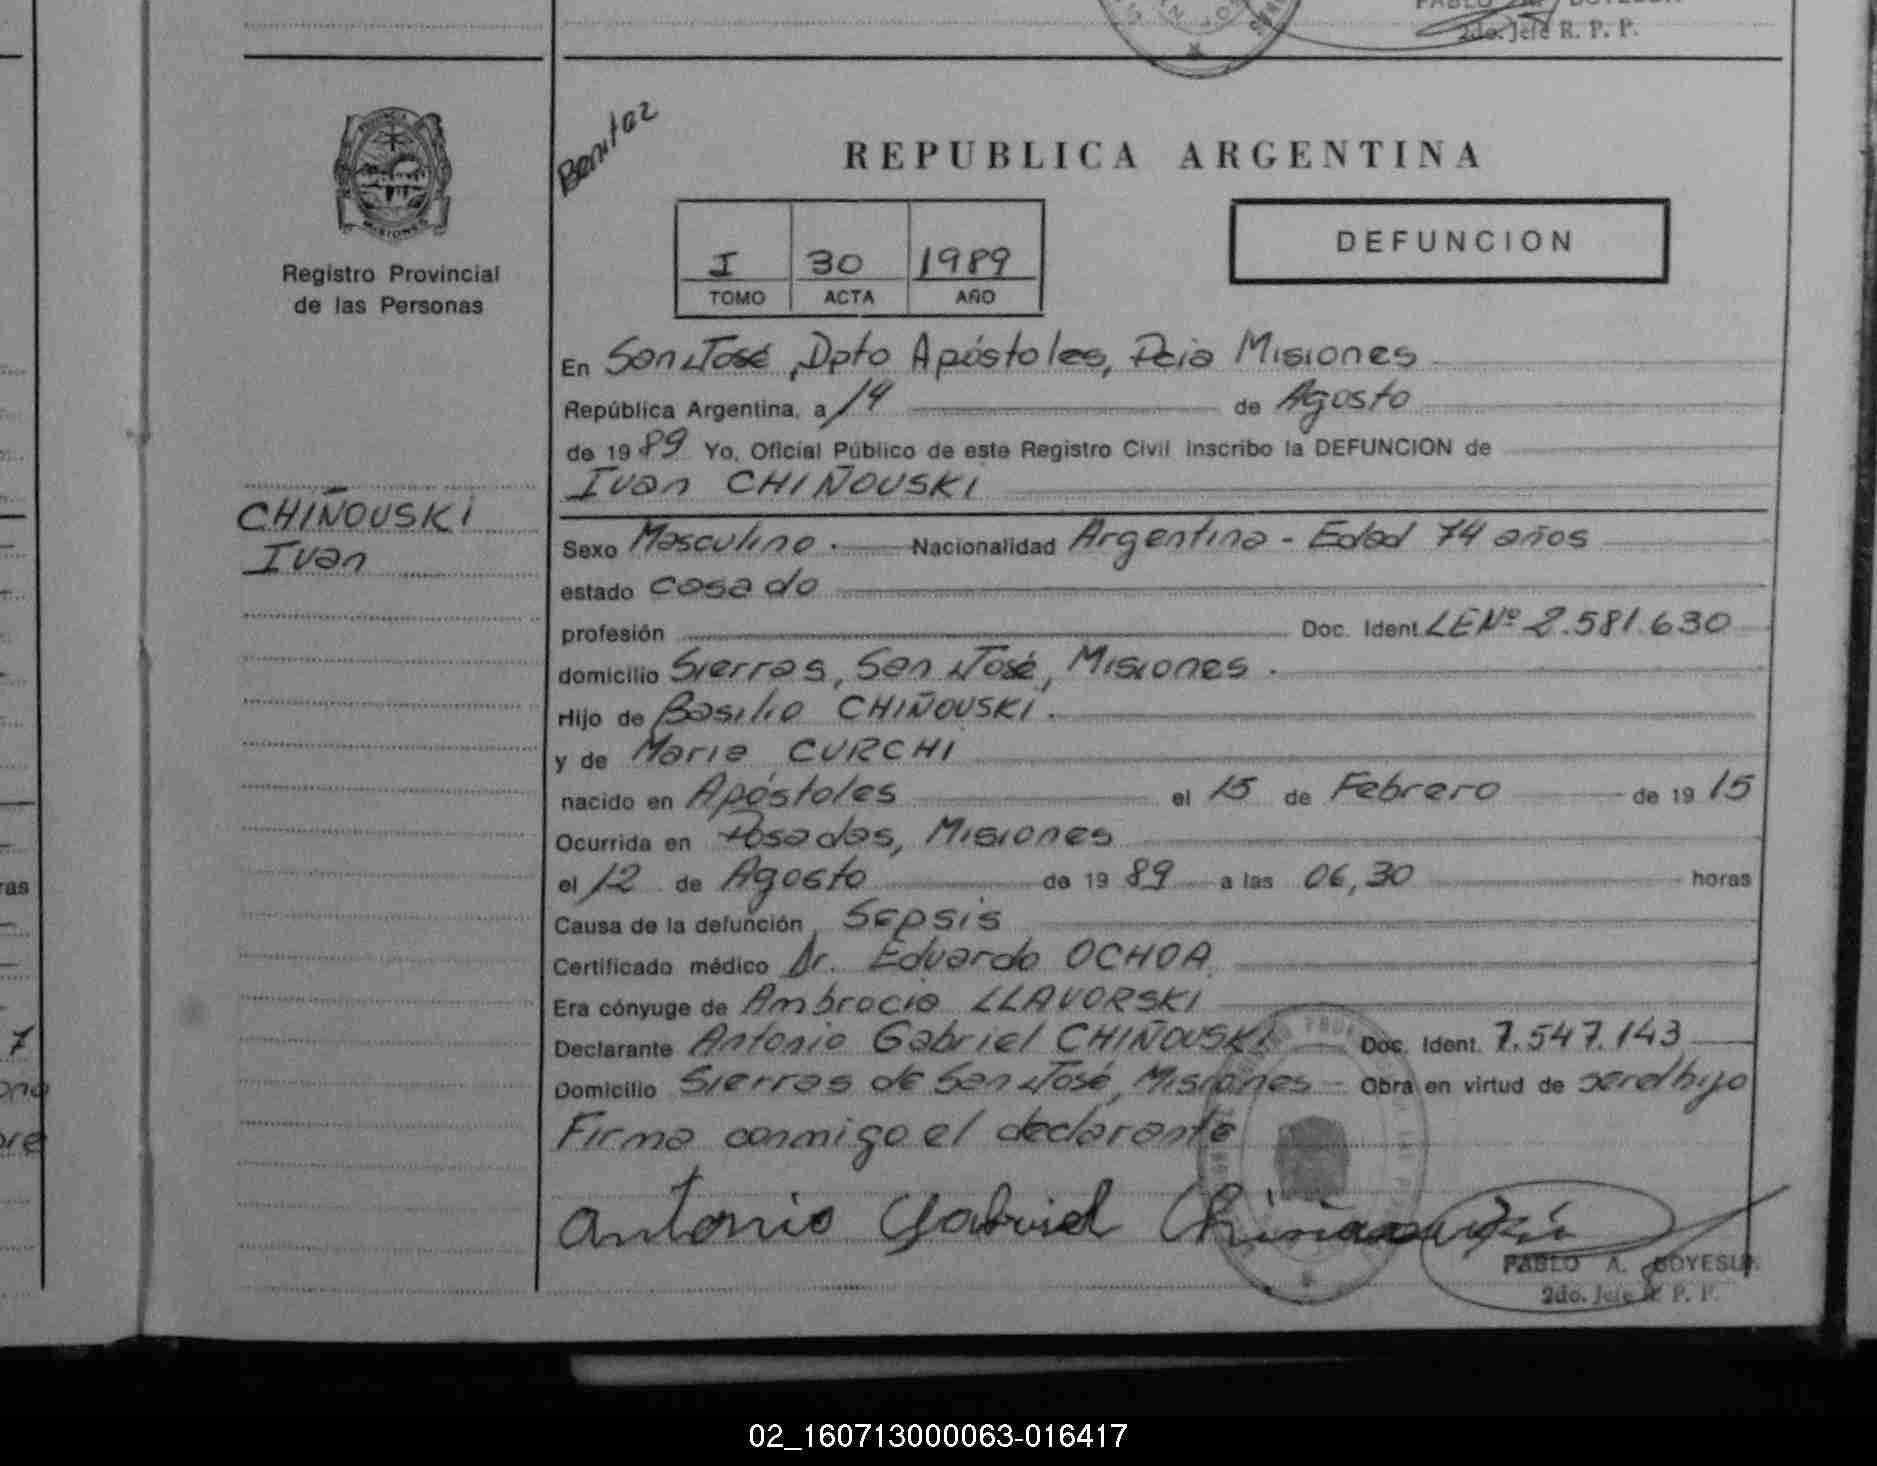 2do. Jefe R. P. P.
PROVINCIA
MISIONES
Registro Provincial
de las Personas
CHIÑOUSKI
Ivan
Benitez
REPUBLICA ARGENTINA
I 30 1989
TOMO ACTA AÑO
DEFUNCION
En San José, Dpto Apóstoles, Pcia Misiones
República Argentina, a 14 de Agosto
de 1989 Yo, Oficial Público de este Registro Civil inscribo la DEFUNCION de
Ivan CHIÑOUSKI
Sexo Masculino. Nacionalidad Argentina - Edad 74 años
estado casado
profesión Doc. Ident. LENº 2.581.630
domicilio Sierras, San José, Misiones.
Hijo de Basilio CHIÑOUSKI.
y de Maria CURCHI
nacido en Apóstoles el 15 de Febrero de 1915
Ocurrida en Posadas, Misiones
el 12 de Agosto de 1989 a las 06,30 horas
Causa de la defunción Sepsis
Certificado médico Dr. Eduardo OCHOA
Era cónyuge de Ambrocia LLAVORSKI
Declarante Antonio Gabriel CHIÑOUSKI Doc. Ident. 7.547.143
Domicilio Sierras de San José, Misiones - Obra en virtud de ser el hijo
Firma conmigo el declarante
Antonio Gabriel
PABLO A.
2do. Jefe R. P. P.
02_160713000063-016417